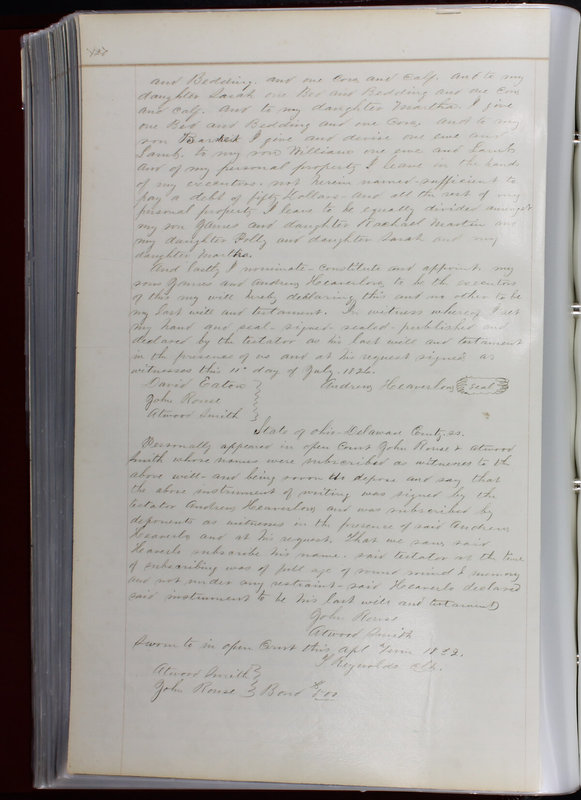 and Bedding. and one Cow, and Calf. And to my
daughter Sarah one Bed and Bedding and one Cow
and calf. And to my daughter Martha. I give
one Bed and Bedding and one Cow, and to my
son I give and devise one ewe and
Lamb, to my son William one ewe and Lamb
and of my personal property I leave in the hands
of my executors. not herein named sufficient to
pay a debt of fifty Dollars and all the rest of my
personal property I leave to be equally divided amongst
my son James and daughter Rachael Martin and
my daughter Polly and daughter Sarah and my
daughter Martha.
And lastly I nominate constitute and appoint my
sons James and Andrew Heaverlow, to be the executors
of this my will hereby declaring this and no other to be
my last will and testament. In witness whereof I set
my hand and seal. signed sealed published and
declared by the testator as his last will and testament
in the presence of us and at his request signed as
witnesses this 11th day of July. 1826.
David Eaton
Andrew Heaverlow seal
John Rouse
Atwood Smith
State of Ohio Delaware County, ss.
Personally appeared in open Court John Rouse & Atwood
Smith whose names were subscribed as witnesses to the
above will and being sworn depose and say that
the above instrument of writing was signed by the
testator Andrew Heaverlow and was subscribed by
deponents as witnesses in the presence of said Andrew
Heaverlo and at his request. That we saw said
Heaverlo subscribe his name. said testator at the time
of subscribing was of full age of sound mind & memory
and not under any restraint said Heaverlo declared
said instrument to be his last will and testament
John Rouse
Atwood Smith
Sworn to in open Court this, Apl Term 1832.
T Reynolds clk.
Atwood Smith
John Rouse } Bond $